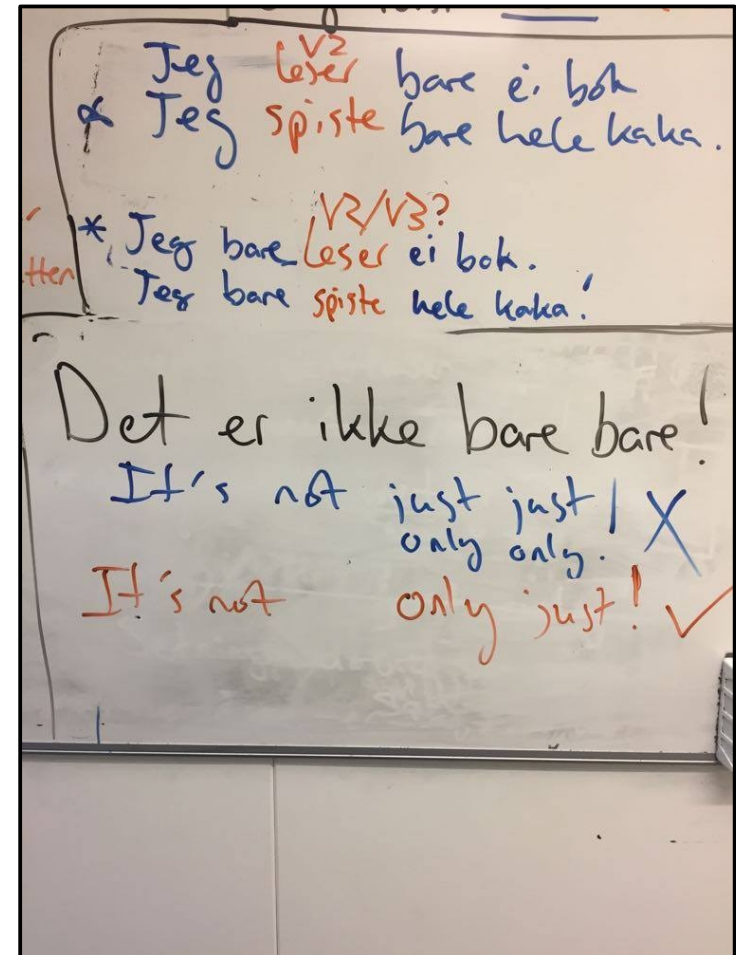 V2
Jeg leser bare ei bok
* Jeg spiste bare hele kaka.
V2/V3?
* Jeg bare leser ei bok.
Jeg bare spiste hele kaka!
tten
Det er ikke bare bare!
It's not just just! X
only only.
It's not only just! ✓